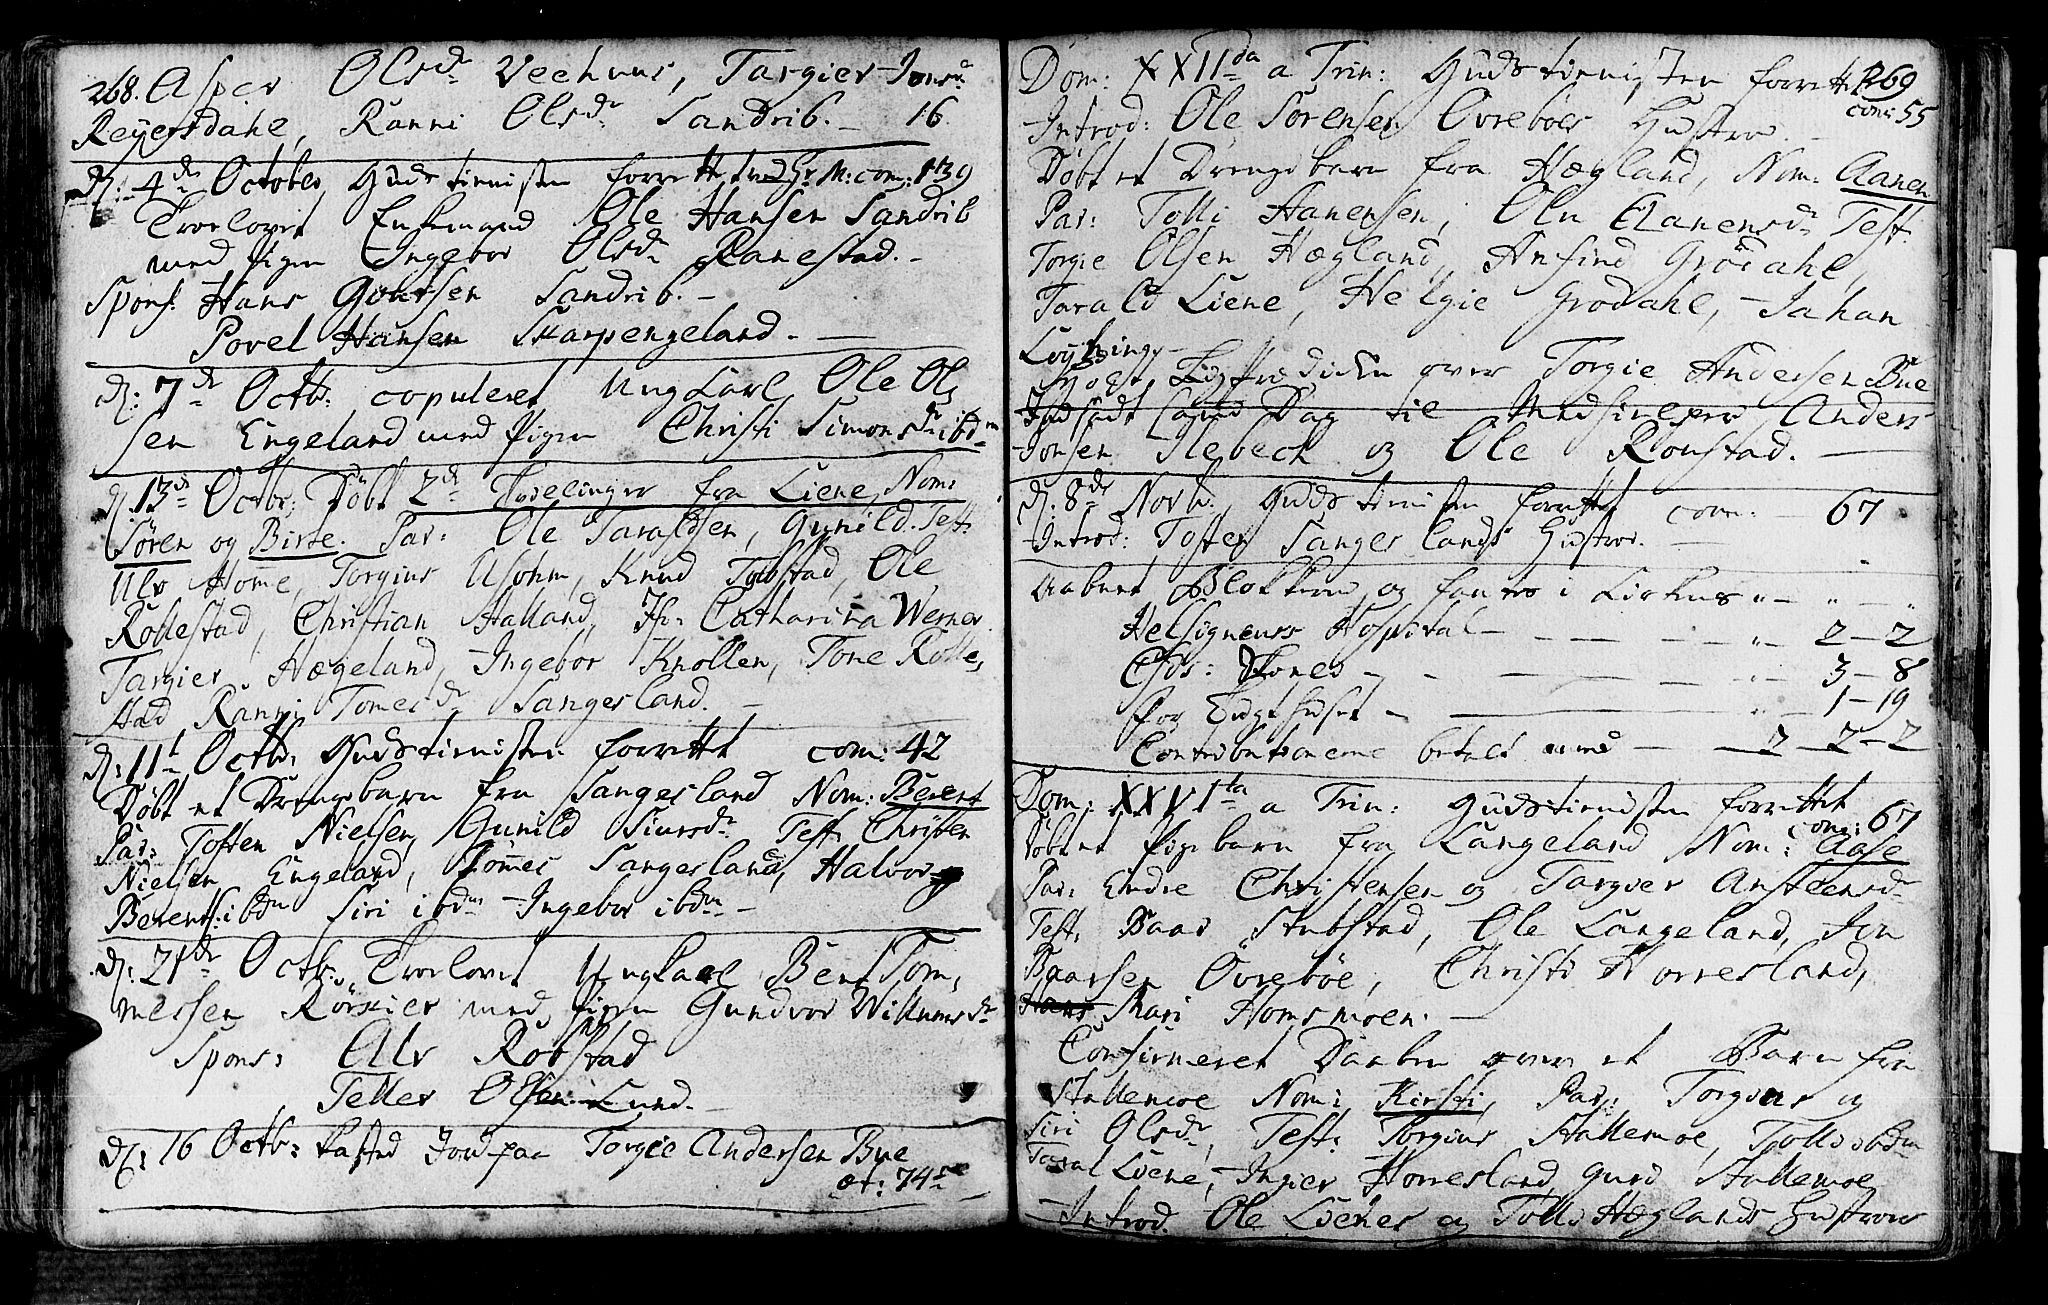 268. Asper Olsdr Veehuus, Targier Jonsdr
Reyersdahl, Ranni Olsdr Sandrib. 16
d: 4de October Gudstienisten forrettet com: 139
Troelovet Enkemand Ole Hansen Sandrib
med Pigen Ingebor Olsdr Ranestad.
Spons: Hans Sandrib.
Povel Hansen Skarpengeland.
d: 7de Octb: copuleret Ungkarl Ole Ol-
sen Engeland med Pigen Christi Simonsdr ibdm
d: 13de Octbr: Döbt 2de Tvelinger fra Liene Nom:
Sören og Birte. Par: Ole Taraldsen, Gunild. Test:
Ulv Home, Torgius Usohm, Knud Tobstad, Ole
Rollestad, Christian Halland, Jfr: Catharina Werner
Targier Hægeland, Ingebor Knollen, Tone Rolle-
stad Ranni Tomesdr Sangesland.
d: 11t Octb: Gudstienisten forrettet com: 42
Döbt et Drengebarn fra Sangesland Nom: Berent
Par: Tosten Nielsen, Gunild Siursdr Test: Christen
Nielsen Engeland, Tommes Sangesland, Halvor
Berents: ibdm Siri ibdm Ingebor ibdm
d: 21de Octb: Troelovet Ungkarl Bent Tom-
messen Rörkier med Pigen Gundvor Willumsdr
Spons: Alv Robstad
Tellef Olsen Lund.
d: 16 Octb: kasted Jord paa Torgie Andersen Bue
æt: 74
Dom: XXIIda a Trin: Gudstienisten forrettet 269
com: 55
Introd: Ole Sörensen Ovreböes Hustrue
Döbt et Drengebarn fra Hægland, Nom: Aanen
Par: Tolli Aanensen, Olu Aanensdr Test:
Torgie Olsen Hægland, Ansind Grödahl,
Tarald Liene, Helgie Grodahl, Jahan
Löyning
Holdt Ligprædiken over Torgie Andersen Bue
Indsadt samme Dag til Medhielpere Anders
Jonsen Ilebech og Ole Ronstad.
d: 8de Novb. Gudstienisten forrettet com: 67
Introd: Tosten Sangeslands Hustroe.
Aabnet Blokken og fantes i Kirkens " — " — "
Helsigneurs Hospital — " — 2 — 2
Eds: — " — 3 — 8
for Tugthuset — " — 1 — 19
Contributionerne betalt med — 2 — 2 — 2
Dom: XXVIta a Trin: Gudstienisten forrettet
com: 67
Döbt et Pigebarn fra Langeland Nom: Aase
Par: Endre Christensen og Targier Ansteensdr
Test: Baar Stubstad, Ole Langeland, Jon
Baarsen Övreböe, Christi Horresland,
Mari Homsmoen.
Confirmeret Daaben over et Barn fra
Stallemoe Nom: Kirsti, Par: Torgius og
Siri Olsdr, Test: Torgius Stallemoe, Tolls ibdm
Taral Liene, Inger Horresland, Gurd Stallemoe
Introd. Ole Lienes og Tolls Hæglands Hustroer